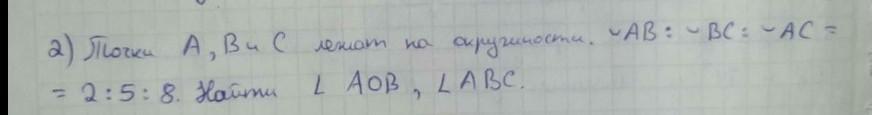 2) Точки A, B и C лежат на окружности. ◡AB : ◡BC : ◡AC =
= 2 : 5 : 8. Найти ∠ AOB , ∠ ABC.